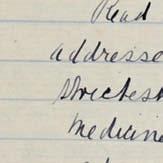 Read
addresse
Strictest
Medicin